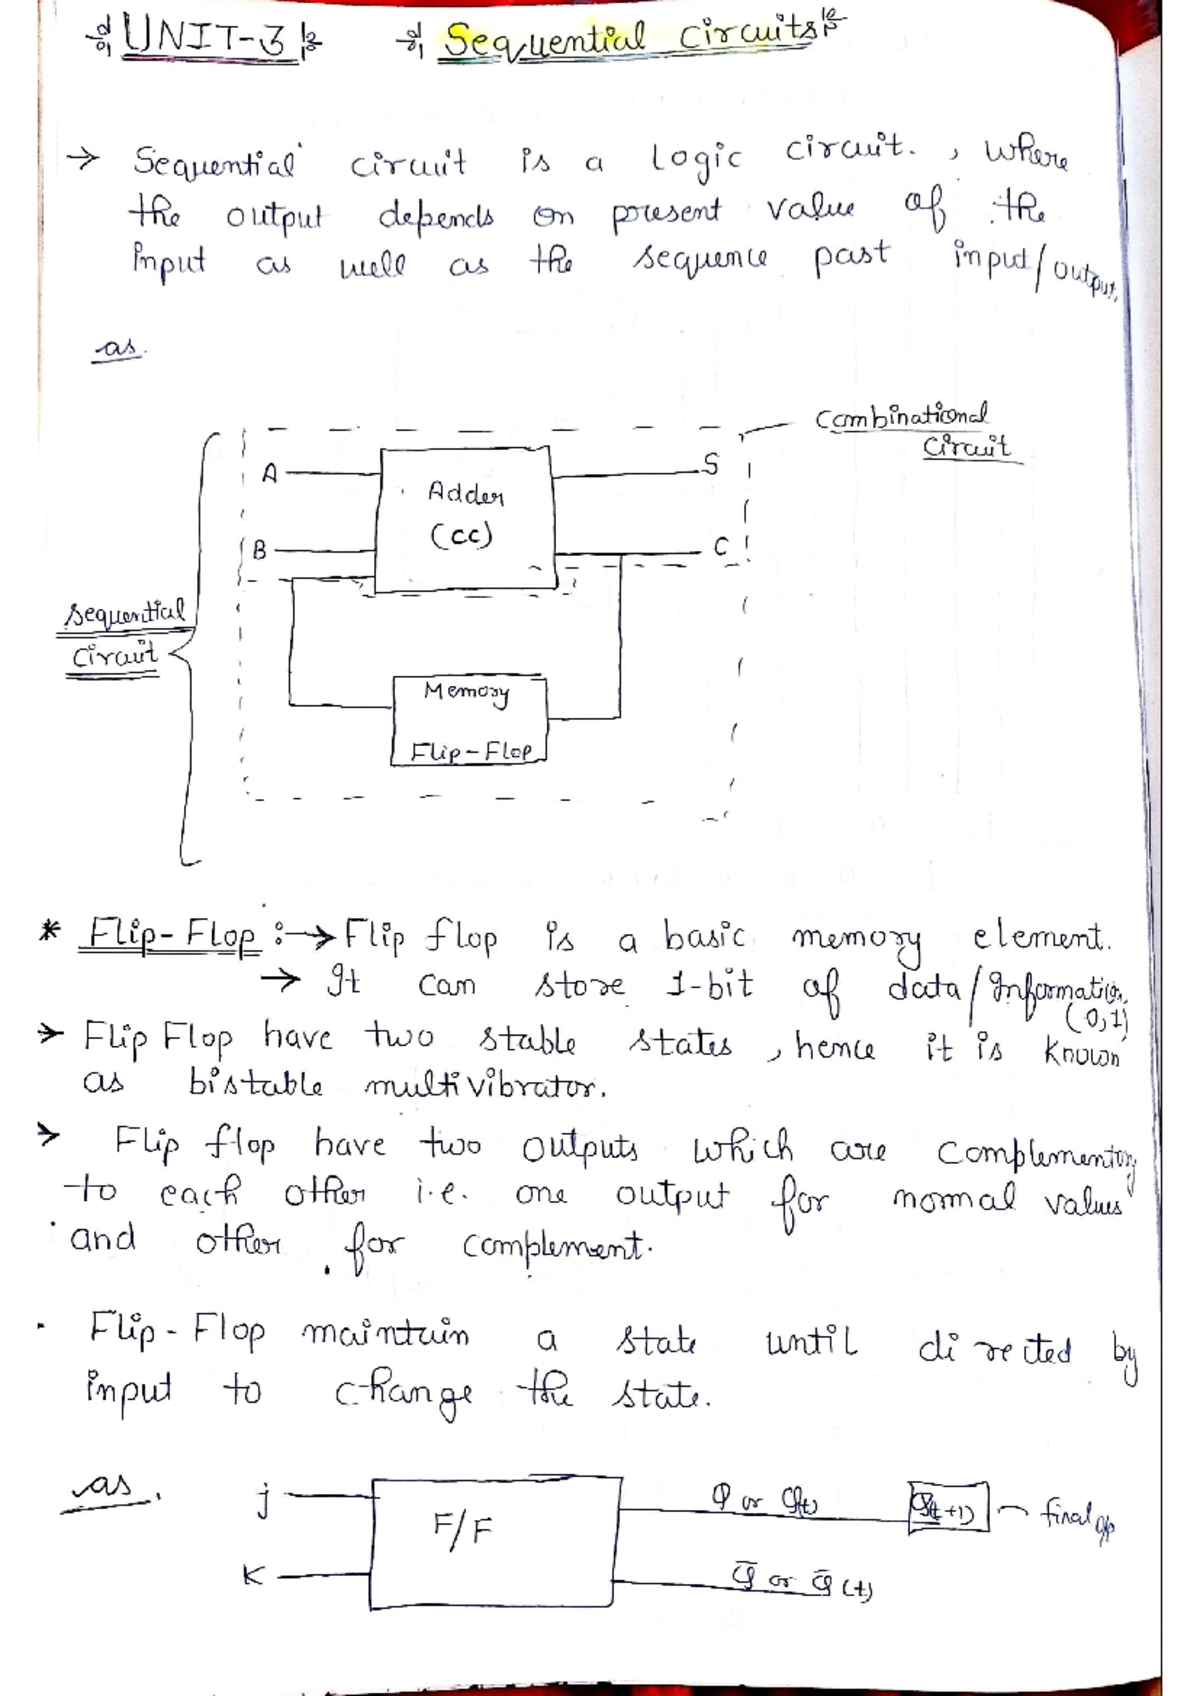 UNIT-3 Sequential circuits
→ Sequential circuit is a Logic circuit. , where
the output depends on present value of the
input as well as the sequence past input/output.
as.
Combinational
circuit
A
S
Adder
(CC)
B
C
Sequential
Circuit
Memory
Flip-Flop
* Flip-Flop :→ Flip flop is a basic memory element.
→ It can store 1-bit of data/Information
(0,1)
→ Flip Flop have two stable states , hence it is known
as bistable multivibrator.
> Flip flop have two outputs which are complementary
to each other i.e. one output for normal values
and other for complement.
· Flip-Flop maintain a state until directed by
input to change the state.
as.
j
F/F
Q or Q(t)
Q(t+1)
final o/p
K
Q̅ or Q̅(t)